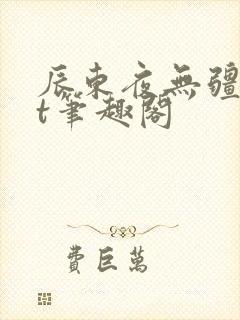 辰東夜無疆
t筆趣閣
費巨萬